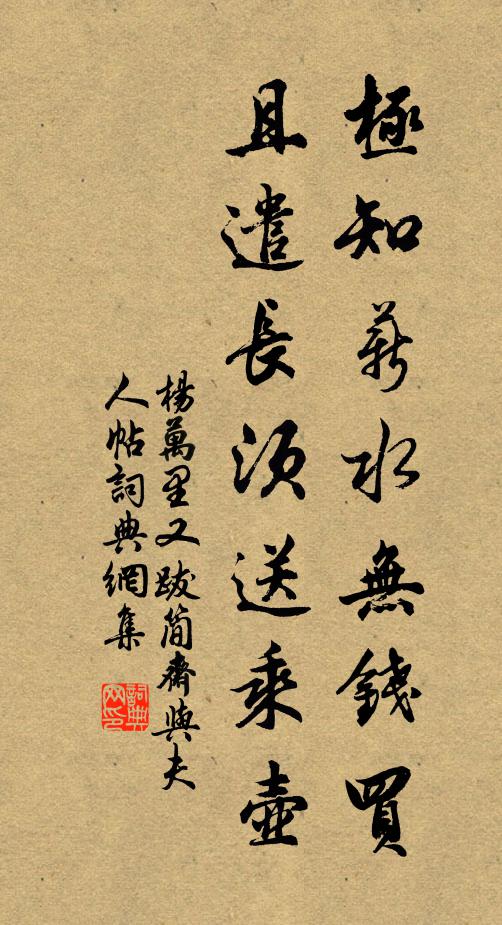 極知薪水無錢買
且遣長須送乘壺
楊萬里又跋簡齋與夫
人帖詞典網集
詞典网印